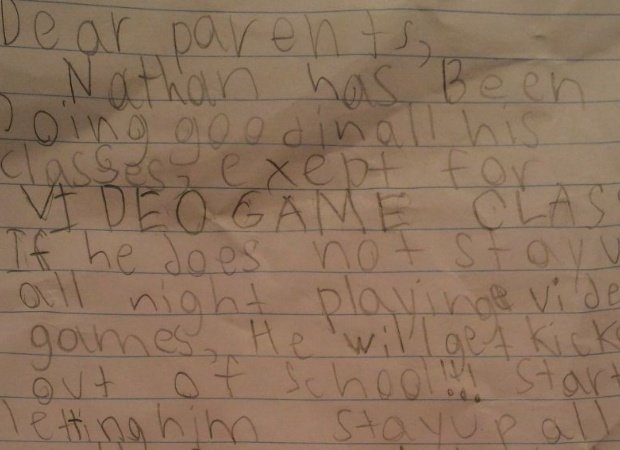 Dear parents,
Nathan has Been
Doing good in all his
classes, exept for
VIDEO GAME CLAS
If he does not stay u
all night playing vide
games, He will get kick
out of school!!! start
letting him stay up all